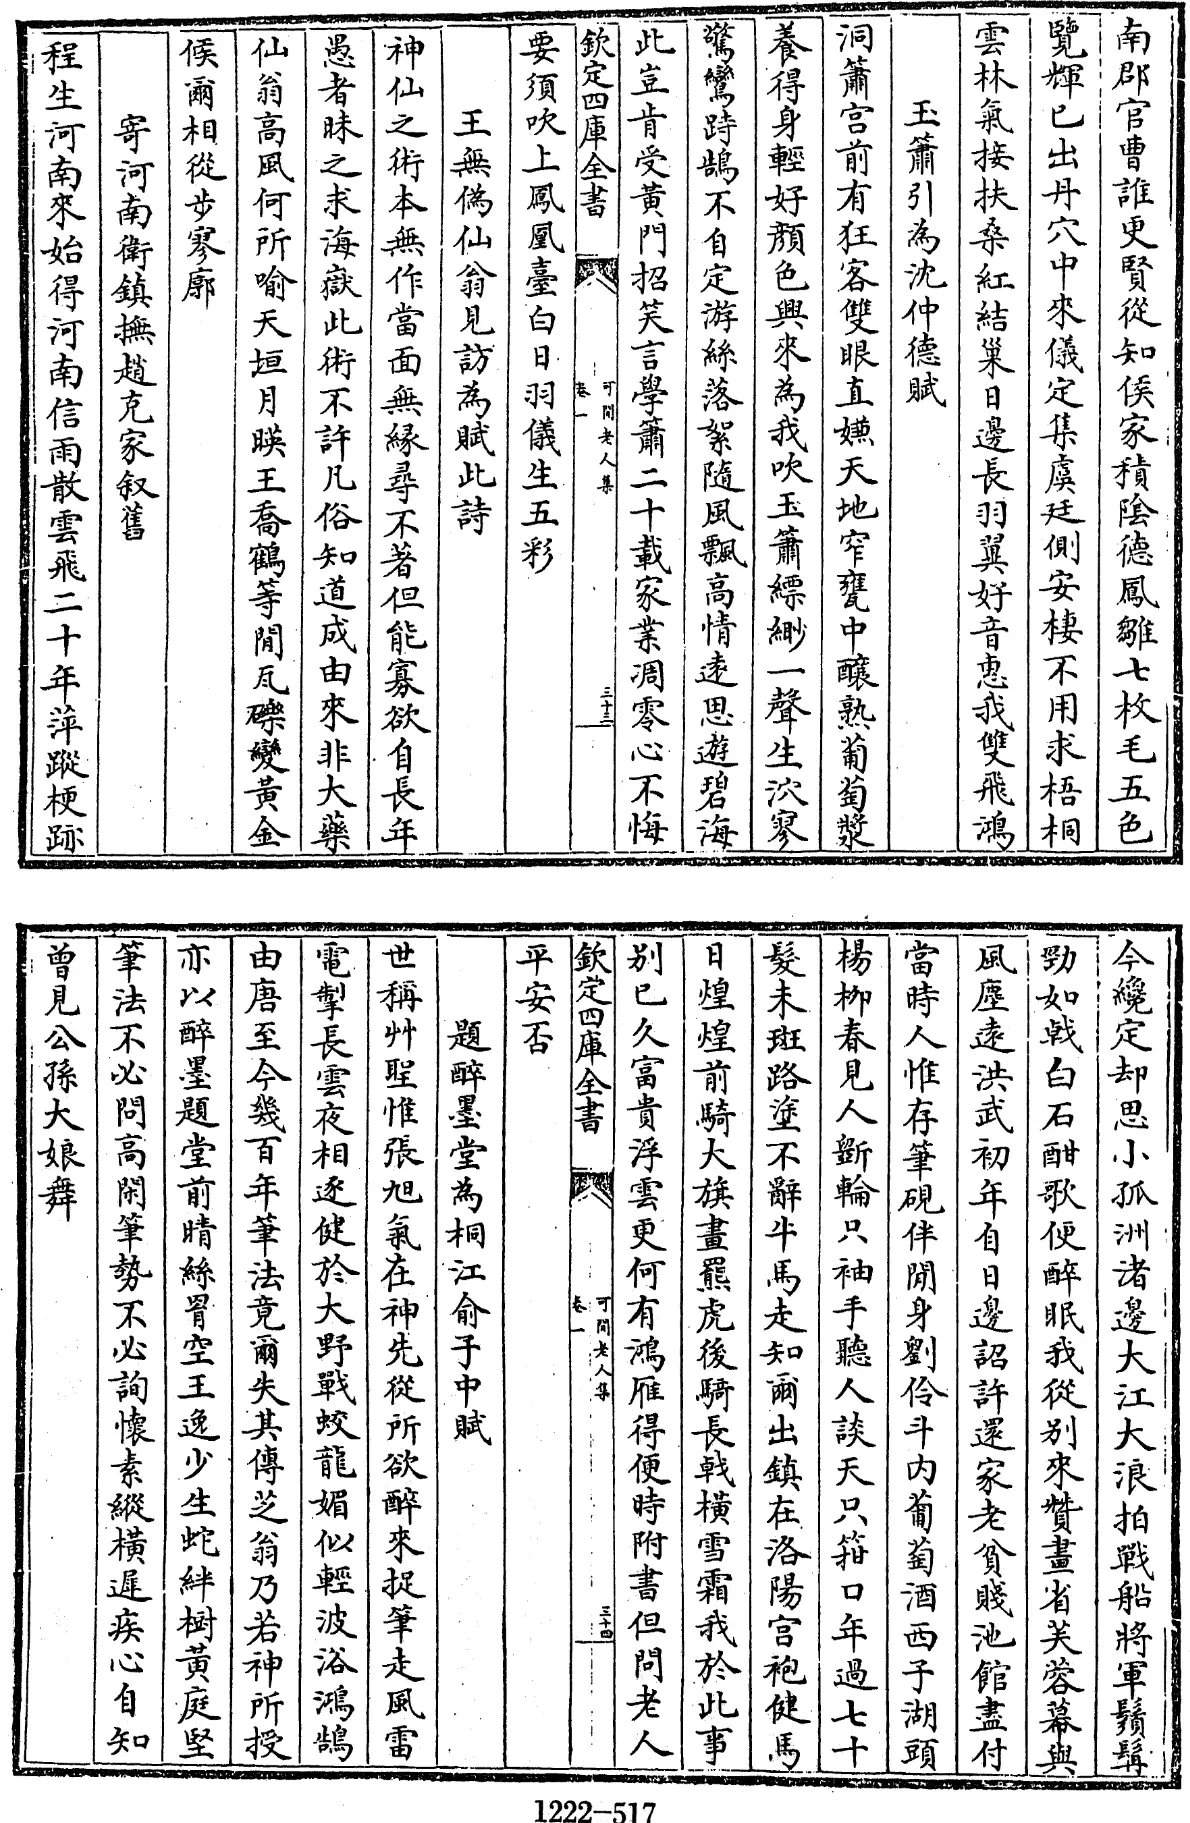 南郡官曹誰更賢從知侯家積陰德鳳雛七枚毛五色
覽輝已出丹穴中來儀定集虞廷側安棲不用求梧桐
雲林氣接扶桑紅結巢日邊長羽翼好音惠我雙飛鴻
玉簫引為沈仲德賦
洞簫宫前有狂客雙眼直嫌天地窄甕中釀熟葡萄漿
養得身輕好顔色興來為我吹玉簫縹緲一聲生泬寥
驚鸞跱鵠不自定游絲落絮隨風飄高情逺思遊碧海
此豈肯受黄門招笑言學簫二十載家業凋零心不悔
欽定四庫全書
可閒老人集
卷一
三十三
要須吹上鳳凰臺白日羽儀生五彩
王無偽仙翁見訪為賦此詩
神仙之術本無作當面無緣尋不著但能寡欲自長年
愚者昧之求海嶽此術不許凡俗知道成由來非大藥
仙翁高風何所喻天垣月暎王喬鶴等閒瓦礫變黄金
候爾相從步寥廓
寄河南衛鎮撫趙克家叙舊
程生河南來始得河南信雨散雲飛二十年萍蹤梗跡
今纔定却思小孤洲渚邊大江大浪拍戰船將軍鬚髯
勁如戟白石酣歌便醉眠我從别來贊畫省芙蓉幕與
風塵逺洪武初年自日邊詔許還家老貧賤池館盡付
當時人惟存筆硯伴閒身劉伶斗内葡萄酒西子湖頭
楊柳春見人斲輪只袖手聽人談天只箝口年過七十
髮未斑路塗不辭牛馬走知爾出鎮在洛陽宫袍健馬
日煌煌前騎大旗畫羆虎後騎長戟横雪霜我於此事
别已久富貴浮雲更何有鴻雁得便時附書但問老人
欽定四庫全書
可閒老人集
卷一
三十四
平安否
題醉墨堂為桐江俞子中賦
世稱艸聖惟張旭氣在神先從所欲醉來捉筆走風雷
電掣長雲夜相逐健於大野戰蛟龍媚似輕波浴鴻鵠
由唐至今幾百年筆法竟爾失其傳芝翁乃若神所授
亦以醉墨題堂前晴絲罥空王逸少生蛇絆樹黄庭堅
筆法不必問高閑筆勢不必詢懷素縱横遲疾心自知
曽見公孫大娘舞
1222-517